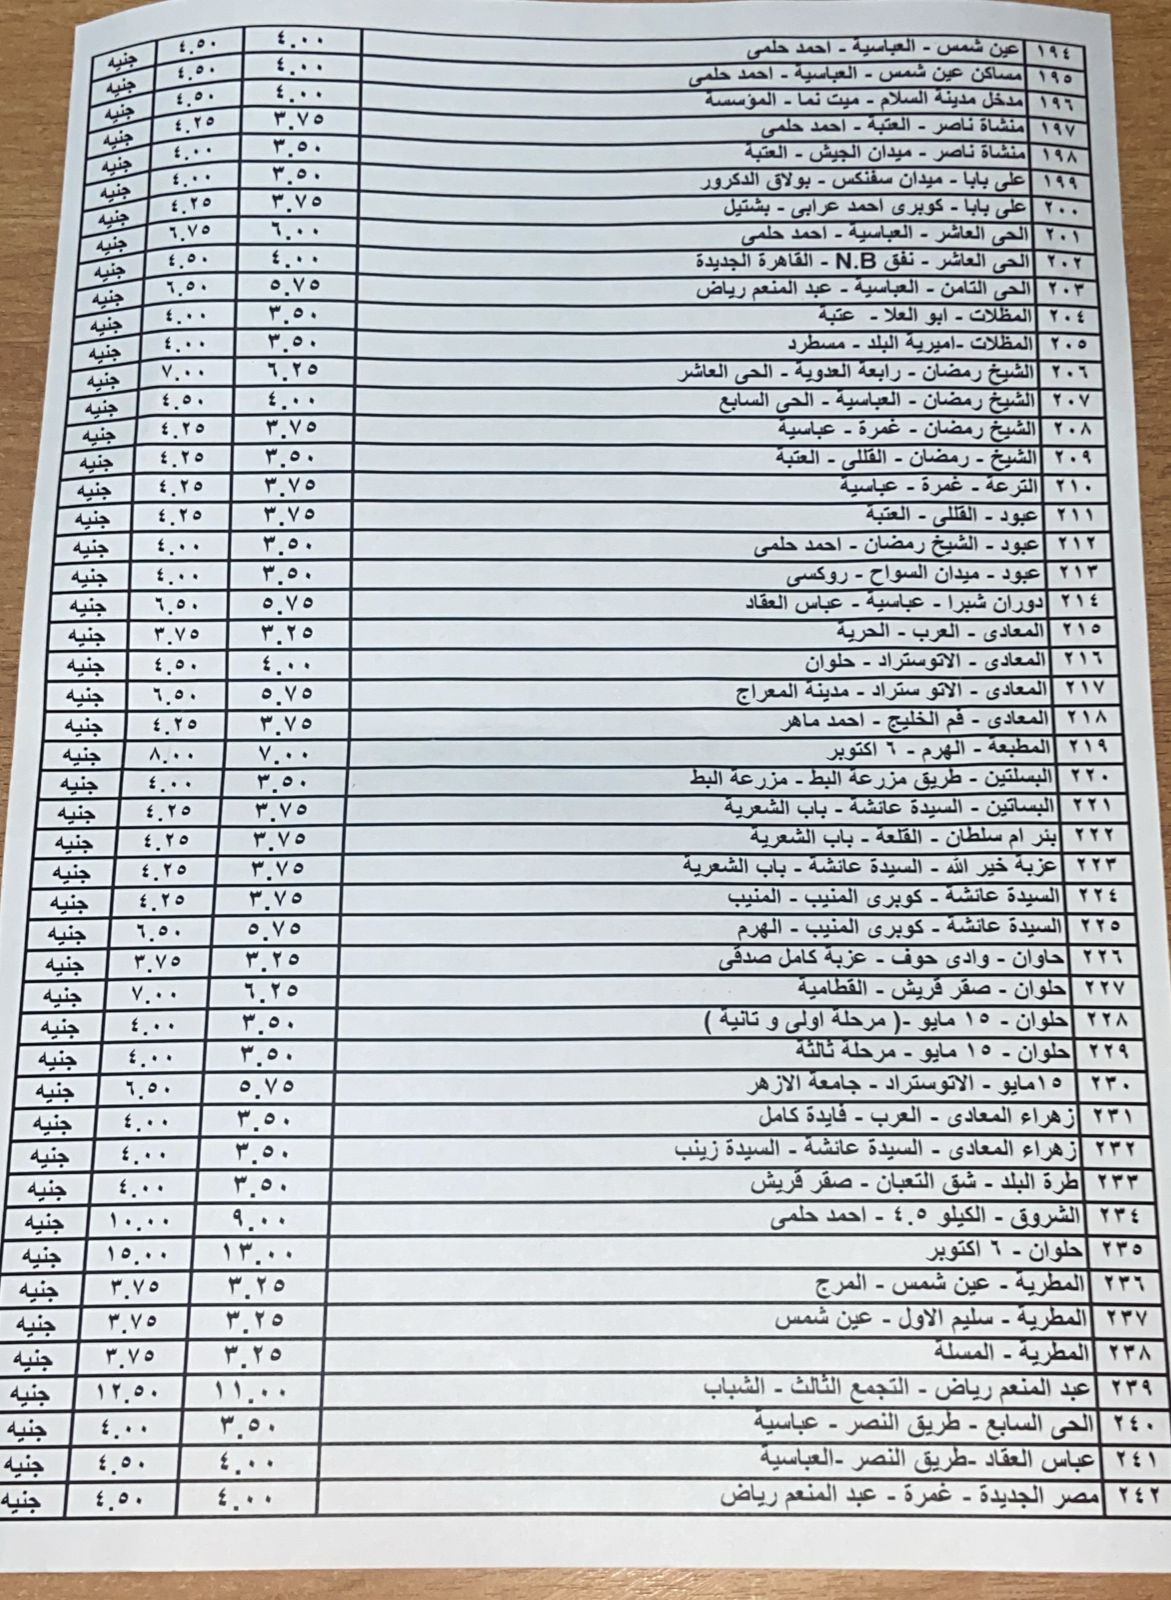 ١٩٤ عين شمس - العباسية - احمد حلمى ٤.٠٠ ٤.٥٠ جنيه
١٩٥ مساكن عين شمس - العباسية - احمد حلمى ٤.٠٠ ٤.٥٠ جنيه
١٩٦ مدخل مدينة السلام - ميت نما - المؤسسة ٤.٠٠ ٤.٥٠ جنيه
١٩٧ منشاة ناصر - العتبة - احمد حلمى ٣.٧٥ ٤.٢٥ جنيه
١٩٨ منشاة ناصر - ميدان الجيش - العتبة ٣.٥٠ ٤.٠٠ جنيه
١٩٩ على بابا - ميدان سفنكس - بولاق الدكرور ٣.٥٠ ٤.٠٠ جنيه
٢٠٠ على بابا - كوبرى احمد عرابى - بشتيل ٣.٧٥ ٤.٢٥ جنيه
٢٠١ الحى العاشر - العباسية - احمد حلمى ٦.٠٠ ٦.٧٥ جنيه
٢٠٢ الحى العاشر - نفق N.B - القاهرة الجديدة ٤.٠٠ ٤.٥٠ جنيه
٢٠٣ الحى الثامن - العباسية - عبد المنعم رياض ٥.٧٥ ٦.٥٠ جنيه
٢٠٤ المظلات - ابو العلا - عتبة ٣.٥٠ ٤.٠٠ جنيه
٢٠٥ المظلات -اميرية البلد - مسطرد ٣.٥٠ ٤.٠٠ جنيه
٢٠٦ الشيخ رمضان - رابعة العدوية - الحى العاشر ٦.٢٥ ٧.٠٠ جنيه
٢٠٧ الشيخ رمضان - العباسية - الحى السابع ٤.٠٠ ٤.٥٠ جنيه
٢٠٨ الشيخ رمضان - غمرة - عباسية ٣.٧٥ ٤.٢٥ جنيه
٢٠٩ الشيخ - رمضان - القللى - العتبة ٣.٥٠ ٤.٢٥ جنيه
٢١٠ الترعة - غمرة - عباسية ٣.٧٥ ٤.٢٥ جنيه
٢١١ عبود - القللى - العتبة ٣.٧٥ ٤.٢٥ جنيه
٢١٢ عبود - الشيخ رمضان - احمد حلمى ٣.٥٠ ٤.٠٠ جنيه
٢١٣ عبود - ميدان السواح - روكسى ٣.٥٠ ٤.٠٠ جنيه
٢١٤ دوران شبرا - عباسية - عباس العقاد ٥.٧٥ ٦.٥٠ جنيه
٢١٥ المعادى - العرب - الحرية ٣.٢٥ ٣.٧٥ جنيه
٢١٦ المعادى - الاتوستراد - حلوان ٤.٠٠ ٤.٥٠ جنيه
٢١٧ المعادى - الاتو ستراد - مدينة المعراج ٥.٧٥ ٦.٥٠ جنيه
٢١٨ المعادى - فم الخليج - احمد ماهر ٣.٧٥ ٤.٢٥ جنيه
٢١٩ المطبعة - الهرم - ٦ اكتوبر ٧.٠٠ ٨.٠٠ جنيه
٢٢٠ البسلتين - طريق مزرعة البط - مزرعة البط ٣.٥٠ ٤.٠٠ جنيه
٢٢١ البساتين - السيدة عائشة - باب الشعرية ٣.٧٥ ٤.٢٥ جنيه
٢٢٢ بئر ام سلطان - القلعة - باب الشعرية ٣.٧٥ ٤.٢٥ جنيه
٢٢٣ عزبة خير الله - السيدة عائشة - باب الشعرية ٣.٧٥ ٤.٢٥ جنيه
٢٢٤ السيدة عائشة - كوبرى المنيب - المنيب ٣.٧٥ ٤.٢٥ جنيه
٢٢٥ السيدة عائشة - كوبرى المنيب - الهرم ٥.٧٥ ٦.٥٠ جنيه
٢٢٦ حاوان - وادى حوف - عزبة كامل صدقى ٣.٢٥ ٣.٧٥ جنيه
٢٢٧ حلوان - صقر قريش - القطامية ٦.٢٥ ٧.٠٠ جنيه
٢٢٨ حلوان - ١٥ مايو -( مرحلة اولى و تانية ) ٣.٥٠ ٤.٠٠ جنيه
٢٢٩ حلوان - ١٥ مايو - مرحلة ثالثة ٣.٥٠ ٤.٠٠ جنيه
٢٣٠ ١٥مايو - الاتوستراد - جامعة الازهر ٥.٧٥ ٦.٥٠ جنيه
٢٣١ زهراء المعادى - العرب - فايدة كامل ٣.٥٠ ٤.٠٠ جنيه
٢٣٢ زهراء المعادى - السيدة عائشة - السيدة زينب ٣.٥٠ ٤.٠٠ جنيه
٢٣٣ طرة البلد - شق التعبان - صقر قريش ٣.٥٠ ٤.٠٠ جنيه
٢٣٤ الشروق - الكيلو ٤.٥ - احمد حلمى ٩.٠٠ ١٠.٠٠ جنيه
٢٣٥ حلوان - ٦ اكتوبر ١٣.٠٠ ١٥.٠٠ جنيه
٢٣٦ المطرية - عين شمس - المرج ٣.٢٥ ٣.٧٥ جنيه
٢٣٧ المطرية - سليم الاول - عين شمس ٣.٢٥ ٣.٧٥ جنيه
٢٣٨ المطرية - المسلة ٣.٢٥ ٣.٧٥ جنيه
٢٣٩ عبد المنعم رياض - التجمع الثالث - الشباب ١١.٠٠ ١٢.٥٠ جنيه
٢٤٠ الحى السابع - طريق النصر - عباسية ٣.٥٠ ٤.٠٠ جنيه
٢٤١ عباس العقاد -طريق النصر -العباسية ٤.٠٠ ٤.٥٠ جنيه
٢٤٢ مصر الجديدة - غمرة - عبد المنعم رياض ٤.٠٠ ٤.٥٠ جنيه